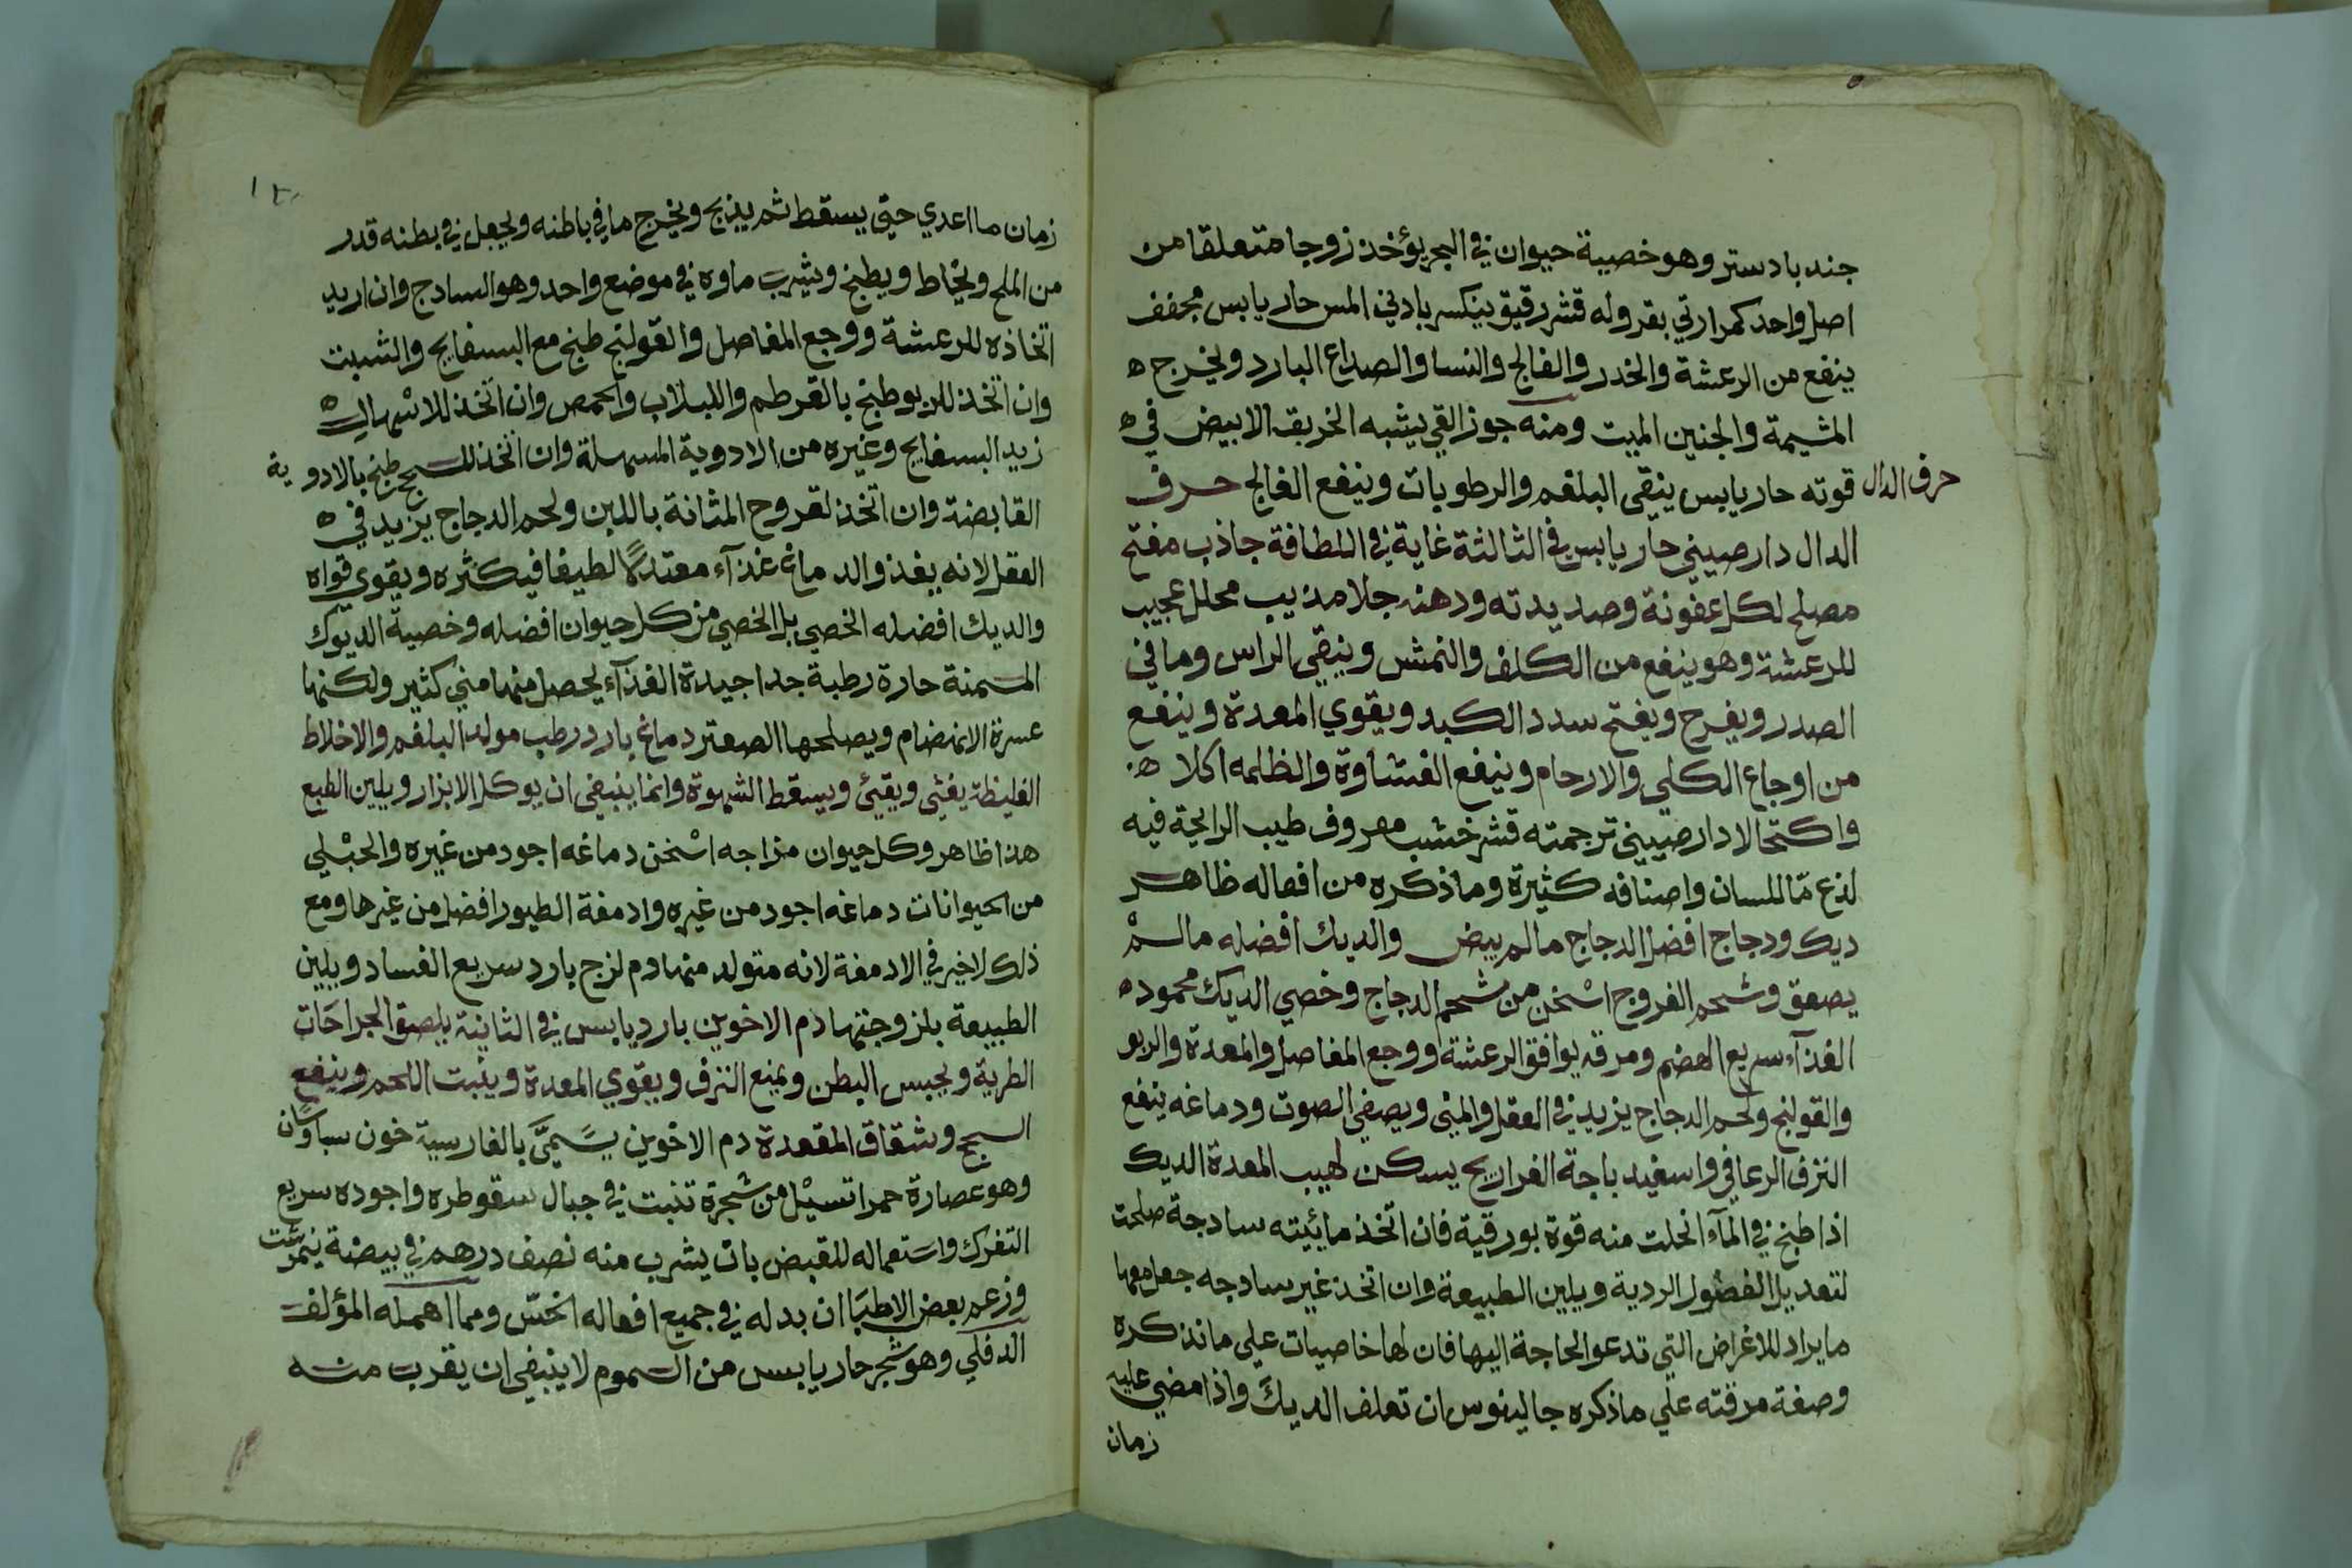 جندبادستر وهو خصية حيوان في البحر يؤخذ زوجا متعلقا من
اصل واحد كمرارتي بقر وله قشر رقيق ينكسر بادني المس حار يابس مجفف
ينفع من الرعشة والخدر والفالج والنسا والصداع البارد ويخرج ه
المشيمة والجنين الميت ومنه جوز القي يشبه الخربق الابيض في ه
حرف الدال
قوته حار يابس ينقي البلغم والرطوبات وينفع الفالج حرف
الدال دارصيني حار يابس في الثالثة غاية في اللطافة جاذب مفتح
مصلح لكل عفونة وصديدته ودهنه جلا مذيب محلل عجيب
للرعشة وهو ينفع من الكلف والنمش وينقي الراس وما في
الصدر ويفرح ويفتح سدد الكبد ويقوي المعدة وينفع
من اوجاع الكلي والارحام وينفع الغشاوة والظلمه اكلا ه
واكتحالا دارصيني ترجمته قشر خشب معروف طيب الرايحة فيه
لذع مّا للسان واصنافه كثيرة وما ذكره من افعاله ظاهر
ديك ودجاج افضل الدجاج ما لم يبيض والديك افضله ما لم
يصعق وشحم الفروج اسْخن من شحم الدجاج وخصي الديك محمود ه
الغذآء سريع الهضم ومرقه يوافق الرعشة ووجع المفاصل والمعدة والربو
والقولنج ولحم الدجاج يزيد في العقل والمني ويصفي الصوت ودماغه ينفع
النزف الرعافي واسفيد باجة الفراريج يسكن لهيب المعدة الديك
اذا طبخ في المآء انحلت منه قوة بورقية فان اتخذ مائيته سادجة صلحت
لتعديل الفضول الردية ويلين الطبيعة وان اتخذ غير سادجه جعل معها
ما يراد للاغراض التي تدعو الحاجة اليها فان لها خاصيات علي ما نذكره
وصفة مرقته علي ما ذكره جالينوس ان تعلف الديك واذا مضي عليه
زمان
زمان ما اعدي حتي يسقط ثم يذبح ويخرج ما في باطنه ويجعل في بطنه قدر
من الملح ويخاط ويطبخ ويشرب ماوه في موضع واحد وهو السادج وان اريد
اتخاذه للرعشة ووجع المفاصل والقولنج طبخ مع البسفايج والشبت
وان اتخذ للربو طبخ بالقرطم واللبلاب والحمص وان اتخذ للاسْهال ه
زيد البسفايج وغيره من الادوية المسهلة وان اتخذ للسحج طبخ بالادوية
القابضة وان اتخذ لقروح المثانة باللبن ولحم الدجاج يزيد في ه
العقل لانه يغذو الدماغ غذآء معتدلًا لطيفا فيكثره ويقوي قواه
والديك افضله الخصي بل الخصي من كل حيوان افضله وخصية الديوك
المسمنة حارة رطبة جدا جيدة الغذآء يحصل منها مني كثير ولكنها
عسرة الانهضام ويصلحها الصعتر دماغ بارد رطب مولد البلغم والاخلاط
الغليظة يغثي ويقيئ ويسقط الشهوة وانما ينبغي ان يوكل الابزار ويلين الطبع
هذا ظاهر وكل حيوان مزاجه اسْخن دماغه اجود من غيره والجبْلي
من الحيوانات دماغه اجود من غيره وادمغة الطيور افضل من غيرها ومع
ذلك لاخير في الادمغة لانه متولد منها دم لزج بارد سريع الفساد ويلين
الطبيعة بلزوجتها دم الاخوين بارد يابس في الثانية يلصق الجراحات
الطرية ويحبس البطن ويمنع النزف ويقوي المعدة وينبت اللحم وينفع
السحج وشقاق المقعدة دم الاخوين يسَمّي بالفارسية خون سياوسان
وهو عصارة حمرا تسيْل من شجرة تنبت في جبال سقوطره واجوده سريع
التفرك واستعماله للقبض بان يشرب منه نصف درهم في بيضة نيمرشت
وزعم بعض الاطبَا ان بدله في جميع افعاله الخسّ ومما اهمله المؤلف
الدفلي وهو شجر حار يابس من السموم لا ينبغي ان يقرب منه